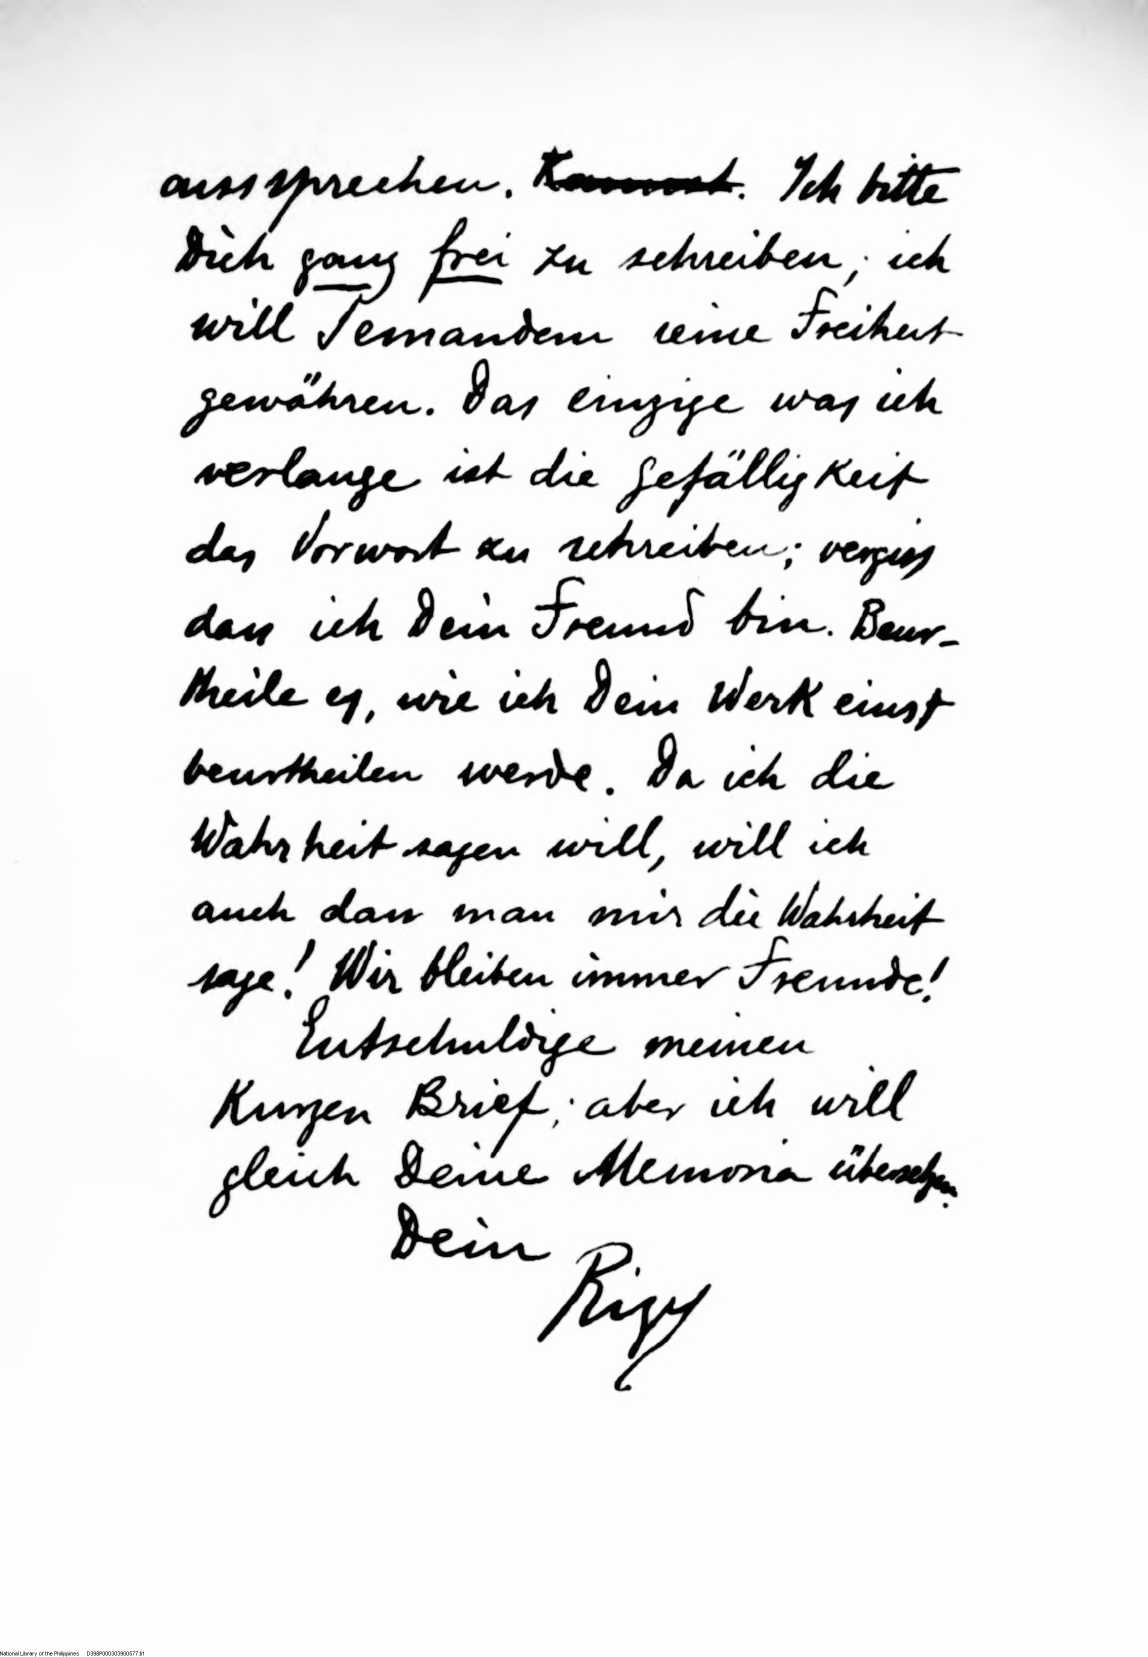 aussprechen. Ich bitte
Dich ganz frei zu schreiben; ich
will Jemandem seine Freiheit
gewähren. Das einzige was ich
verlange ist die Gefälligkeit
das Vorwort zu schreiben; vergiss
dass ich Dein Freund bin. Beur-
theile es, wie ich Dein Werk einst
beurtheilen werde. Da ich die
Wahrheit sagen will, will ich
auch dass man mir die Wahrheit
sage! Wir bleiben immer Freunde!
Entschuldige meinen
Kurzen Brief; aber ich will
gleich Deine Memoria übersetzen.
Dein
Rizal
National Library of the Philippines D398P000303900577.tif